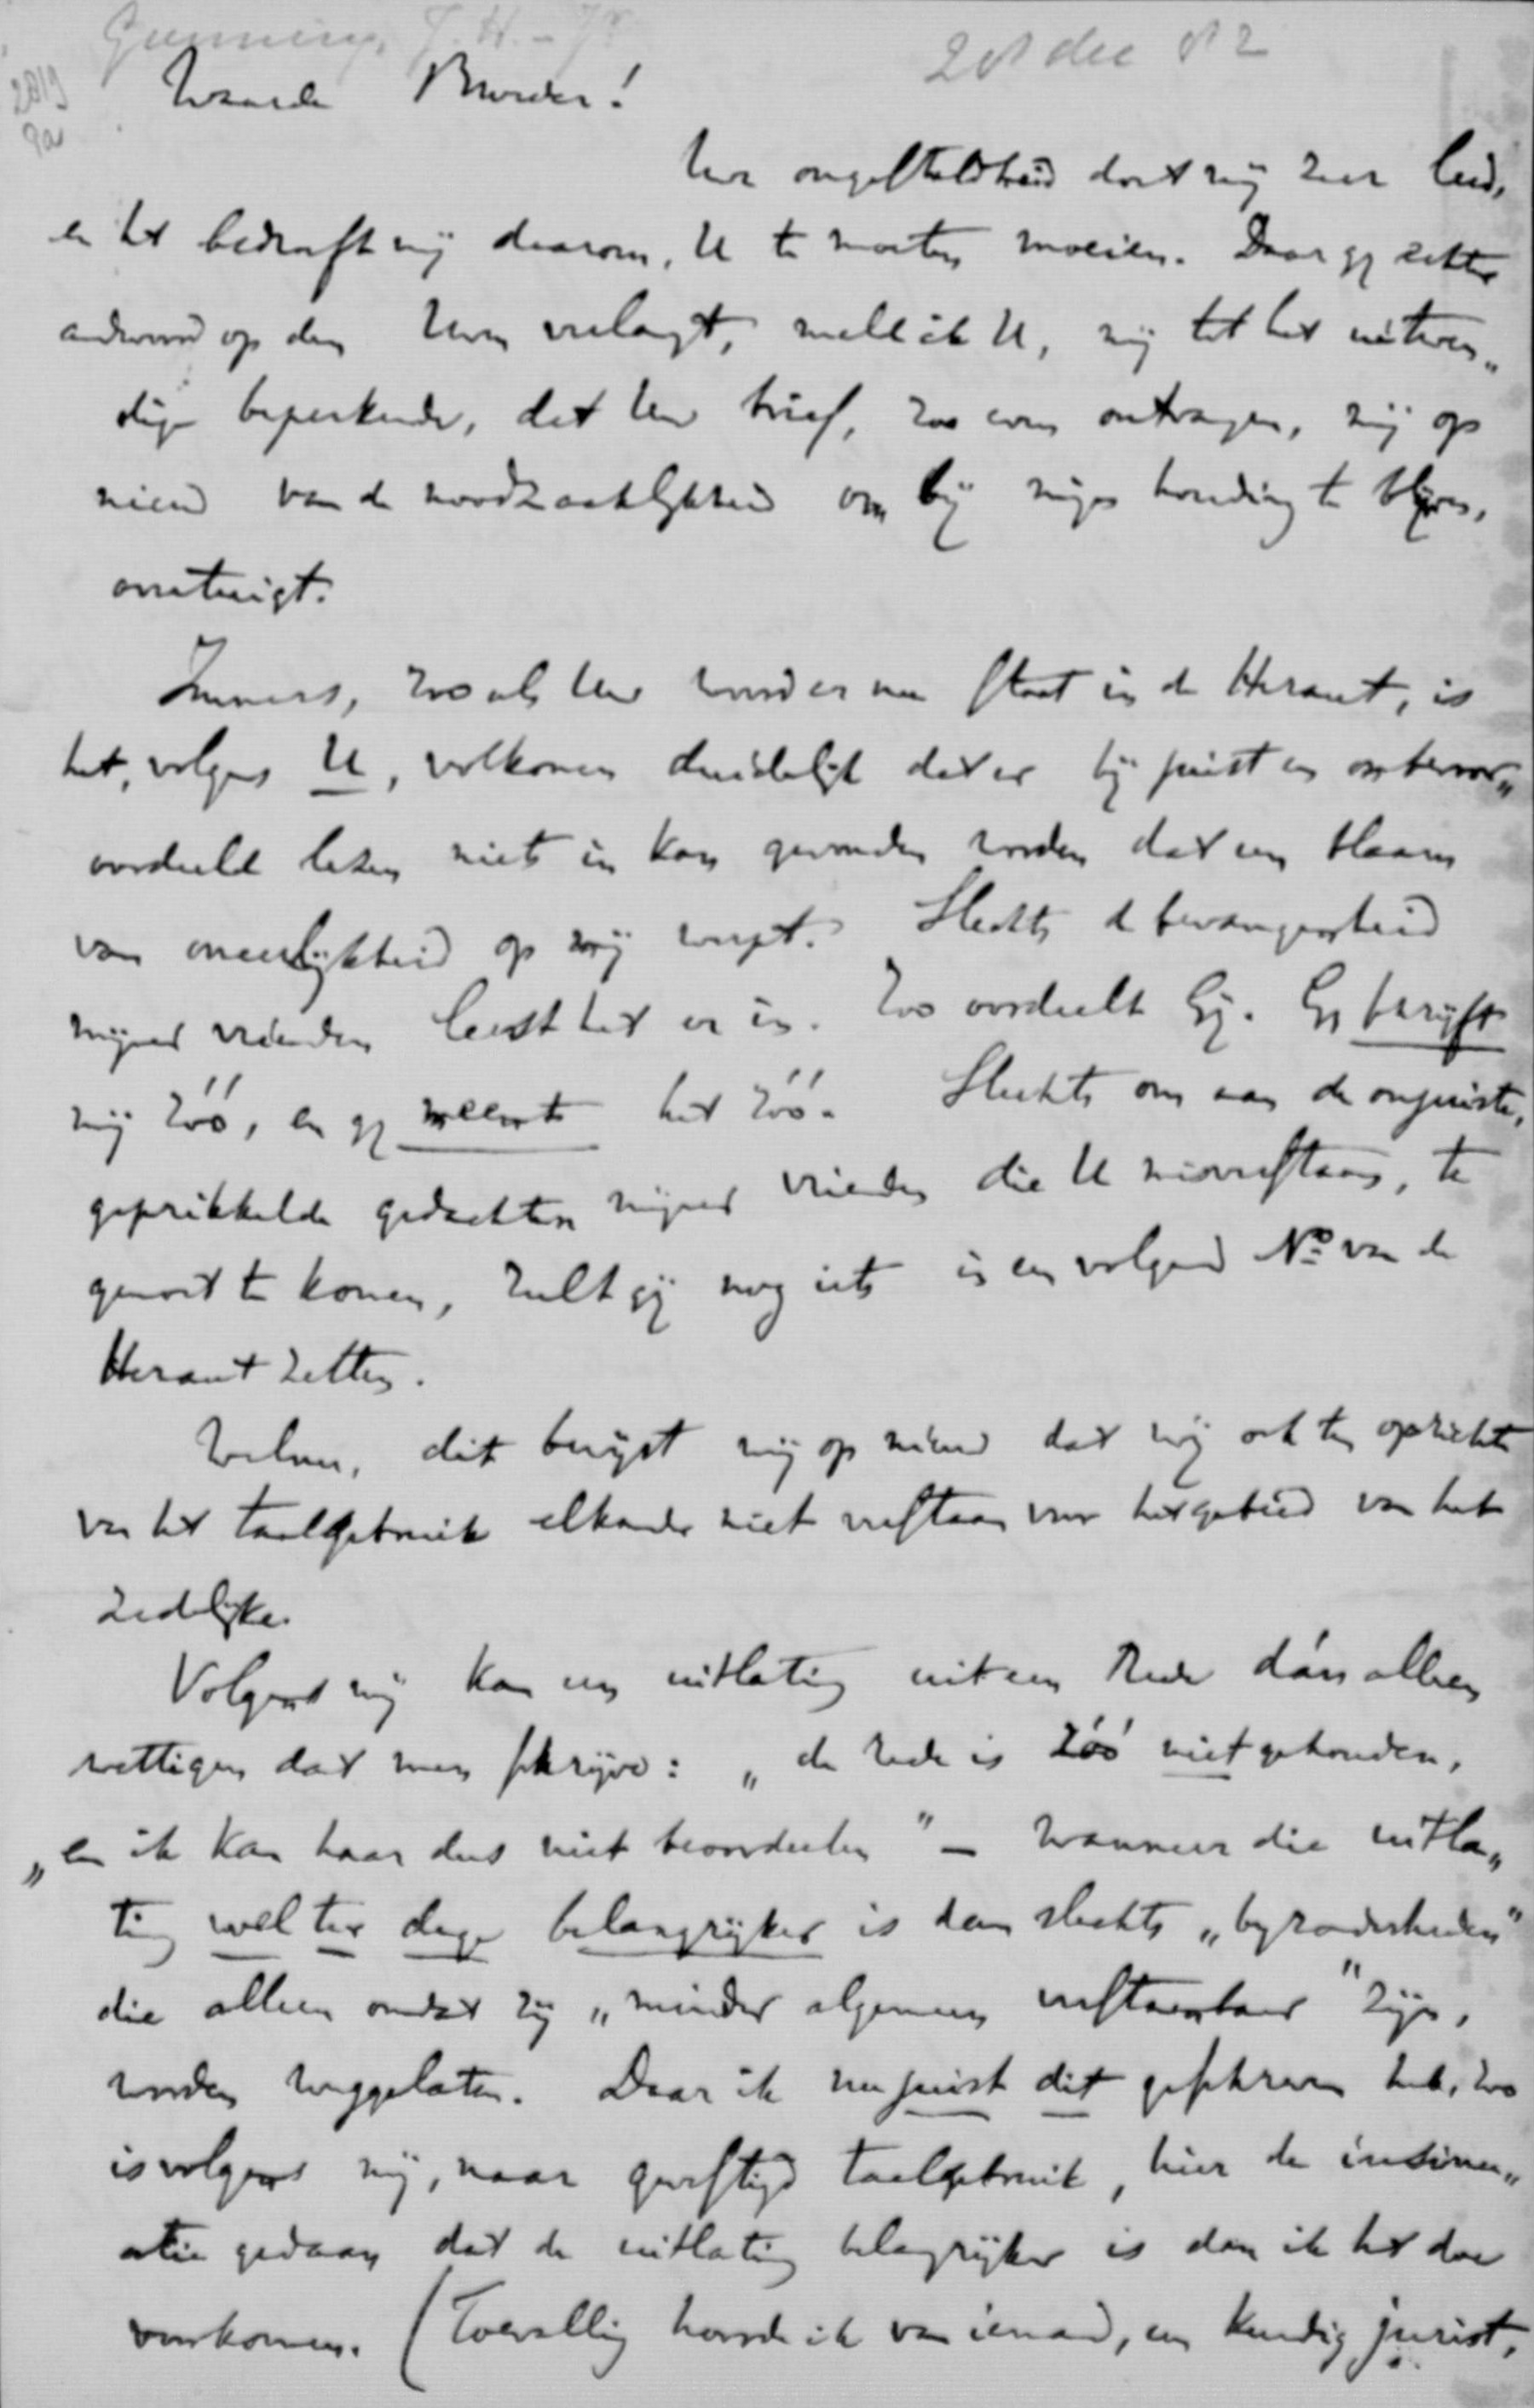 Gunning, J.H. - Jr
20 dec 82
2019
Waarde Broeder!
Uw ongesteldheid doet mij zeer leed,
en het bedroeft mij daarom, U te moeten moeien. Daar gij echter
antwoord op den Uwen verlangt, meld ik U, mij tot het noodwen„
dige beperkende, dat Uw brief, zoo even ontvangen, mij op
nieuw van de noodzaakelijkheid om bij mijne houding te blijven,
overtuigt.
Immers, zoo als Uw woord er nu staat in de Heraut, is
het, volgens U, volkomen duidelijk dat er bij juist en onbevoor„
oordeeld lezen niets in kan gevonden worden dat een blaam
van oneerlijkheid op mij werpt. Slechts de bevangenheid
mijner vrienden leest het er in. Zoo oordeelt Gij. Gij schrijft
mij zóó, en gij meent het zóó. Slechts om aan de onjuiste,
geprikkelde gedachten mijner vrienden die U misverstaan, te
gemoet te komen, zult gij nog iets in een volgend No. van de
Heraut zetten.
Welnu, dit bewijst mij op nieuw dat wij ook ten opzichte
van het taalgebruik elkander niet verstaan voor het gebied van het
zedelijke.
Volgens mij kan een uitlating uit een Rede dán alleen
wettigen dat men schrijve: „de rede is zóó niet gehouden,
„en ik kan haar dus niet beoordeelen" – wanneer die uitla„
ting wel ter dege belangrijker is dan slechts „byzonderheden"
die alleen omdat zij „minder algemeen verstaanbaar" zijn,
worden weggelaten. Daar ik nu juist dit geschreven heb, zoo
is volgens mij, naar gevestigd taalgebruik, hier de insinu„
atie gedaan dat de uitlating belangrijker is dan ik het doe
voorkomen. (Toevallig hoorde ik van iemand, een kundig jurist,